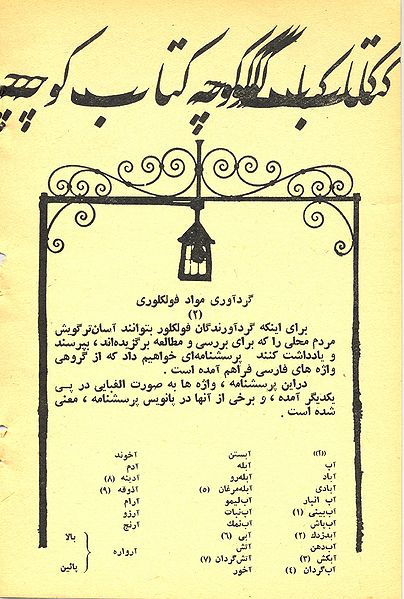 کتاب کوچه کتاب کوچه
گردآوری مواد فولکلوری
(۲)
برای اینکه گردآورندگان فولکلور بتوانند آسان‌ترگویش
مردم محلی را که برای بررسی و مطالعه برگزیده‌اند، بپرسند
و یادداشت کنند پرسشنامه‌ای خواهیم داد که از گروهی
واژه های فارسی فراهم آمده است.
دراین پرسشنامه، واژه ها به صورت الفبایی در پـی
یکدیگر آمده، و برخی از آنها در پانویس پرسشنامه، معنی
شده است.
«آ»
آب
آباد
آبادی
آب انبار
آب‌بینی (۱)
آب‌پاش
آبدزدك (۲)
آب‌دهن
آبکش (۳)
آب‌گردان (۴)
آبستن
آبله
آبله‌رو
آبله‌مرغان (۵)
آب‌لیمو
آب‌نبات
آب‌نمك
آبی (۶)
آتش
آتش‌گردان (۷)
آخور
آخوند
آدم
آدینه (۸)
آذوقه (۹)
آرام
آرزو
آرنج
آرواره
بالا
پائین